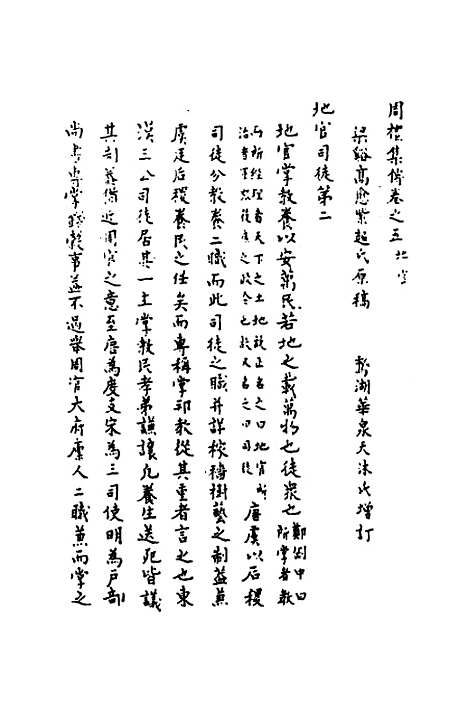 周禮集傳卷之五 地官
梁谿高愈紫超氏原稿 鵝湖華泉天沐氏增訂
地官司徒第二
地官掌教養以安萬民若地之載萬物也徒眾也鄭剛中曰所掌者教
而所經理者天下之土地故正名之曰地官所治者軍眾徒庶之政令也故又名之曰司徒 唐虞以后稷
司徒分教養二職而此司徒之職并詳稼穡樹藝之制蓋兼
虞廷后稷養民之任矣而專稱掌邦教從其重者言之也東
漢三公司徒居其一主掌教民孝弟謙讓凡養生送死皆議
其制蓋猶近周官之意至唐為度支宋為三司使明為戶部
尚書專掌錢穀事蓋不過舉周官大府廩人二職兼而掌之